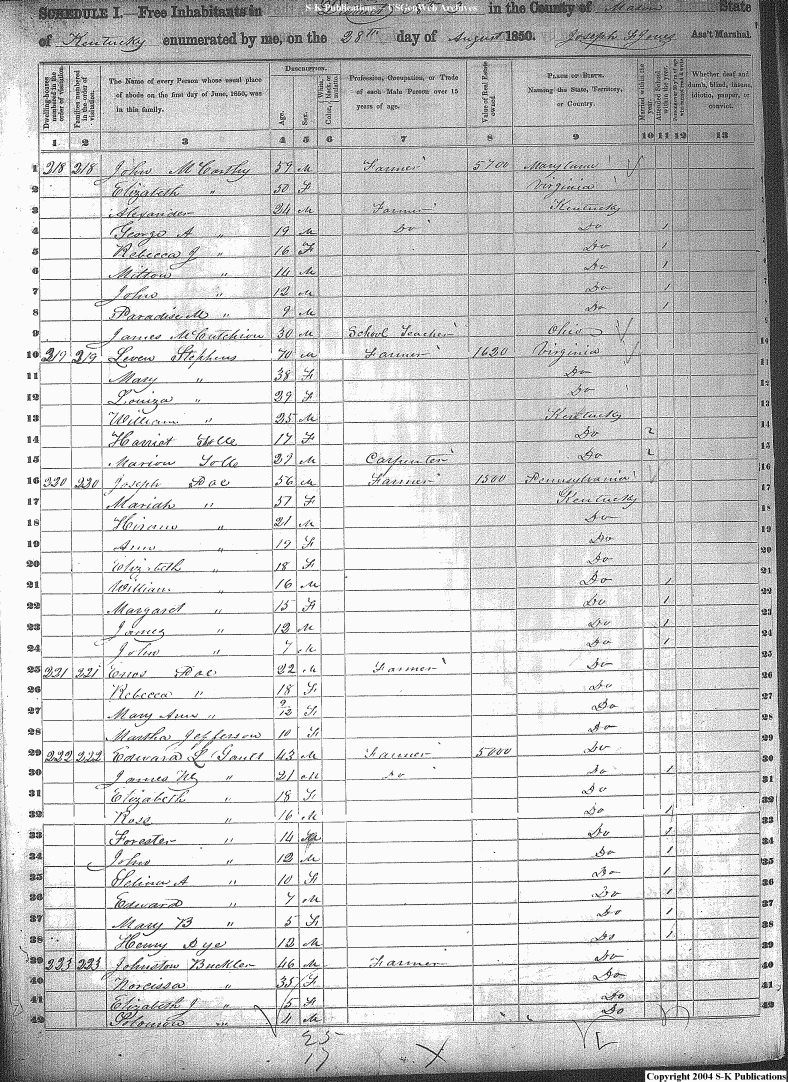 S-K Publications - USGenWeb Archives
SCHEDULE I.—Free Inhabitants in in the County of Mason State
of Kentucky enumerated by me, on the 28th day of August 1850. Joseph F Jones Ass't Marshal.
Dwelling-houses numbered in the order of visitation.
Families numbered in the order of visitation.
The Name of every Person whose usual place of abode on the first day of June, 1850, was in this family.
Description.
Age.
Sex.
White, black, or mulatto. Color,
Profession, Occupation, or Trade of each Male Person over 15 years of age.
Value of Real Estate owned.
Place of Birth. Naming the State, Territory, or Country.
Married within the year.
Attended School within the year.
Whether deaf and dumb, blind, insane, idiotic, pauper, or convict.
1 2 3 4 5 6 7 8 9 10 11 12 13
1 218 218 John McCarthy 59 M Farmer 5700 Maryland
2 Elizabeth " 50 F Virginia
3 Alexander 24 M Farmer Kentucky
4 George A " 19 M Do Do 1
5 Rebecca J " 16 F Do 1
6 Milton " 14 M Do 1
7 John " 12 M Do 1
8 Paradise M " 9 M Do 1
9 James McCutchion 30 M School Teacher Ohio
10 219 219 Leven Stephens 70 M Farmer 1620 Virginia
11 Mary " 38 F Do
12 Louiza " 29 F Do
13 William " 25 M Kentucky
14 Harriet Tolle 17 F Do 2
15 Marion Tolle 29 M Carpenter Do 2
16 220 220 Joseph Poe 56 M Farmer 1500 Pennsylvania
17 Mariah " 57 F Kentucky
18 Hiram " 21 M Do
19 Ann " 19 F Do
20 Elizabeth " 18 F Do
21 William " 16 M Do 1
22 Margaret " 15 F Do 1
23 James " 12 M Do 1
24 John " 7 M Do 1
25 221 221 Poe 22 M Farmer Do
26 Rebecca " 18 F Do
27 Mary Ann " 9/12 F Do
28 Martha Jefferson 10 F Do
29 222 222 Edward L Gault 43 M Farmer 5000 Do
30 James " 21 M Do Do 1
31 Elizabeth " 18 F Do
32 Ross " 16 M Do 1
33 Forester " 14 M Do 1
34 John " 12 M Do 1
35 Selina A " 10 F Do 1
36 Edward " 7 M Do 1
37 Mary B " 5 F Do 1
38 Henry Bye 12 M Do 1
39 223 223 Johnston Buckler 46 M Farmer Do
40 Norcissa " 35 F Do
41 Elizabeth J " 5 F Do
42 Solomon " 4 M Do
25
17
X
Copyright 2004 S-K Publications